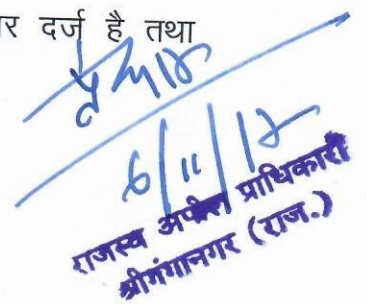 र दर्ज है तथा
6/11/17
राजस्व अपील प्राधिकारी
श्रीगंगानगर (राज.)